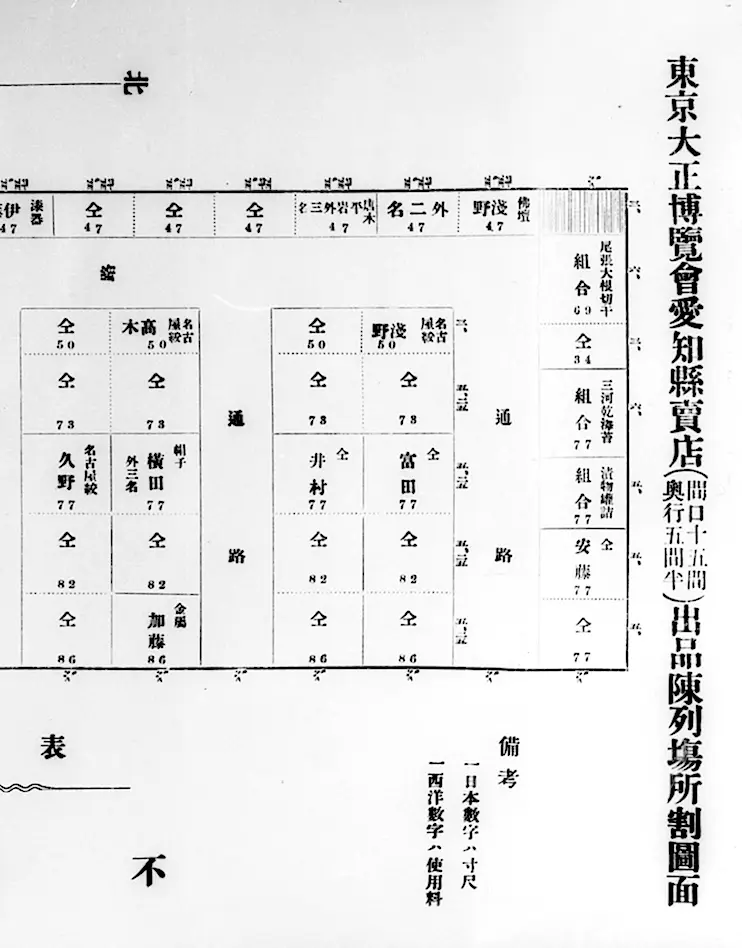 東京大正博覽會愛知縣賣店(間口十五間奧行五間半)出品陳列塲所割圖面
北
佛壇
淺野
47
外二名
47
唐木
平岩外三名
47
仝
47
仝
47
仝
47
漆器
伊
47
尾張大根切干
組合
69
仝
34
三河乾海苔
組合
77
漬物罐詰
組合
77
仝
安藤
77
仝
77
通路
名古屋絞
淺野
50
仝
73
仝
富田
77
仝
82
仝
86
仝
50
仝
73
仝
井村
77
仝
82
仝
86
通路
名古屋絞
高木
50
仝
73
組子
橫田
外三名
77
仝
82
金鵄
加藤
86
仝
50
仝
73
名古屋絞
久野
77
仝
82
仝
86
備考
一日本數字ハ寸尺
一西洋數字ハ使用料
表
不